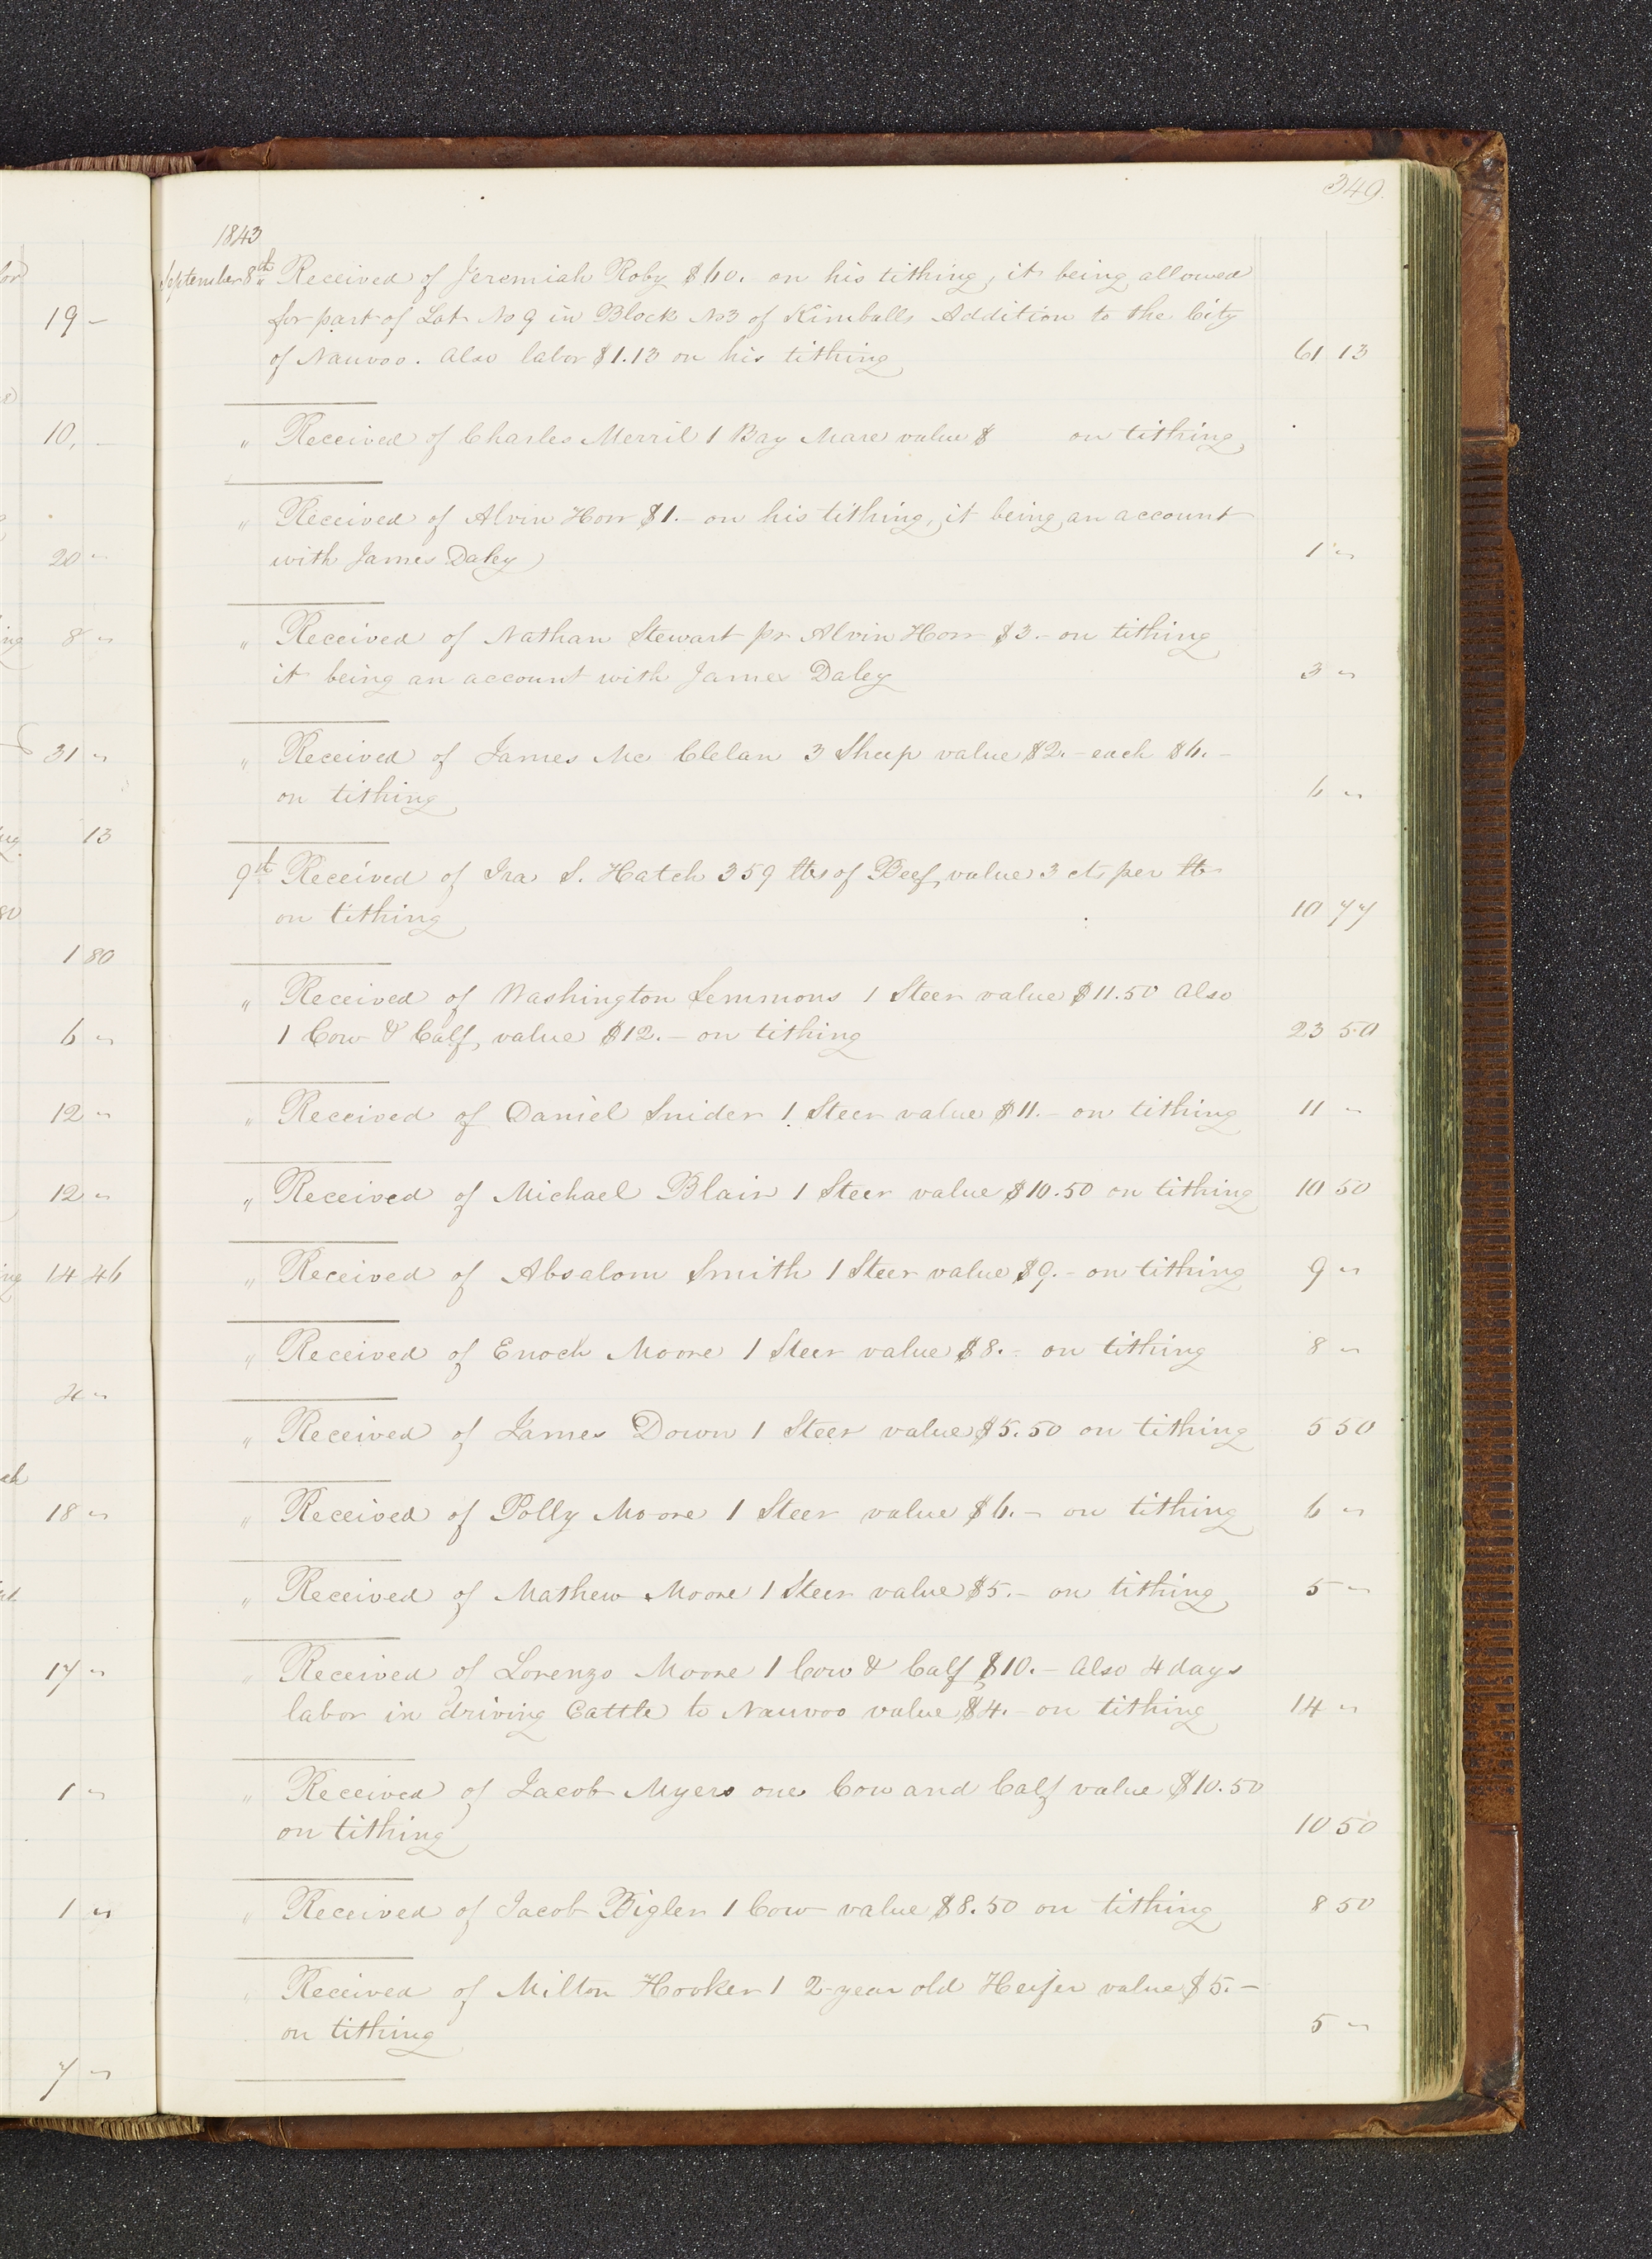 or
19 –
10. –
20 "
ing 8 "
31 "
ing. 13
80
1 80
6 "
12 "
12 "
ing 14 46
4 "
18 "
17 "
1 "
1 "
7 "
349.
1843
September 8th " Received of Jeremiah Roby $60. on his tithing, it being allowed
for part of Lot No 9 in Block No 3 of Kimballs Addition to the City
of Nauvoo. Also labor $1.13 on his tithing 61 13
" Received of Charles Merril 1 Bay Mare value $ on tithing,
" Received of Alvin Horr $1.– on his tithing, it being an account
with James Daley 1 "
" Received of Nathan Stewart pr Alvin Horr $3.– on tithing
it being an account with James Daley 3 "
" Received of James Mc Clelan 3 Sheep value $2.– each $6.–
on tithing 6 "
9th Received of Ira S. Hatch 359 lbs of Beef, value 3 cts per lb
on tithing 10 77
" Received of Washington Lemmons 1 Steer value $11.50 Also
1 Cow & Calf, value $12.– on tithing 23 50
" Received of Daniel Snider 1 Steer value $11.– on tithing 11 "
" Received of Michael Blair 1 Steer value $10.50 on tithing 10 50
" Received of Absalom Smith 1 Steer value $9.– on tithing 9 "
" Received of Enoch Moore 1 Steer value $8.– on tithing 8 "
" Received of James Down 1 Steer value $5.50 on tithing 5 50
" Received of Polly Moore 1 Steer value $6.– on tithing 6 "
" Received of Mathew Moore 1 Steer value $5.– on tithing 5 "
" Received of Lorenzo Moore 1 Cow & Calf $10.– Also 4 days
labor in driving Cattle to Nauvoo value $4.– on tithing 14 "
" Received of Jacob Myers one Cow and Calf value $10.50
on tithing 10 50
" Received of Jacob Bigler 1 Cow value $8.50 on tithing 8 50
" Received of Milton Hooker 1 2-year old Heifer value $5.–
on tithing 5 "